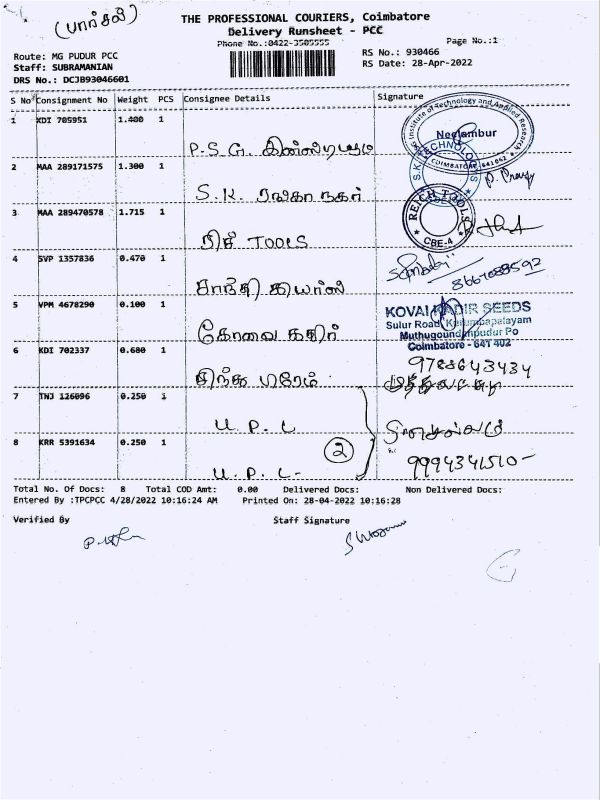 (பார்சல்)
THE PROFESSIONAL COURIERS, Coimbatore
Delivery Runsheet - PCC
Phone No.:0422-3505555
Page No.:1
Route: MG PUDUR PCC
RS No.: 930466
Staff: SUBRAMANIAN
RS Date: 28-Apr-2022
DRS No.: DCJB93046601
S No Consignment No Weight PCS Consignee Details Signature
1 KDI 705951 1.400 1
P.S.G.
Institute of Technology and Applied Research
Neelambur
COIMBATORE 641062
2 MAA 289171575 1.300 1
S.K. ரங்கா நகர்
3 MAA 289470578 1.715 1
ரிச் TOOLS
REICH TOOLS
CBE-4
4 SVP 1357836 0.470 1
சாந்தி கியர்ஸ்
5 VPM 4678290 0.100 1
கோவை கதிர்
KOVAI KADIR SEEDS
Sulur Road, Kurumbapalayam
Muthugoundanpudur Po
Coimbatore - 641 402
6 KDI 702337 0.680 1
9788643434
7 TNJ 126096 0.250 1
U.P.L
8 KRR 5391634 0.250 1
U.P.L-
2
9994341510-
Total No. Of Docs: 8 Total COD Amt: 0.00 Delivered Docs: Non Delivered Docs:
Entered By :TPCPCC 4/28/2022 10:16:24 AM Printed On: 28-04-2022 10:16:28
Verified By Staff Signature